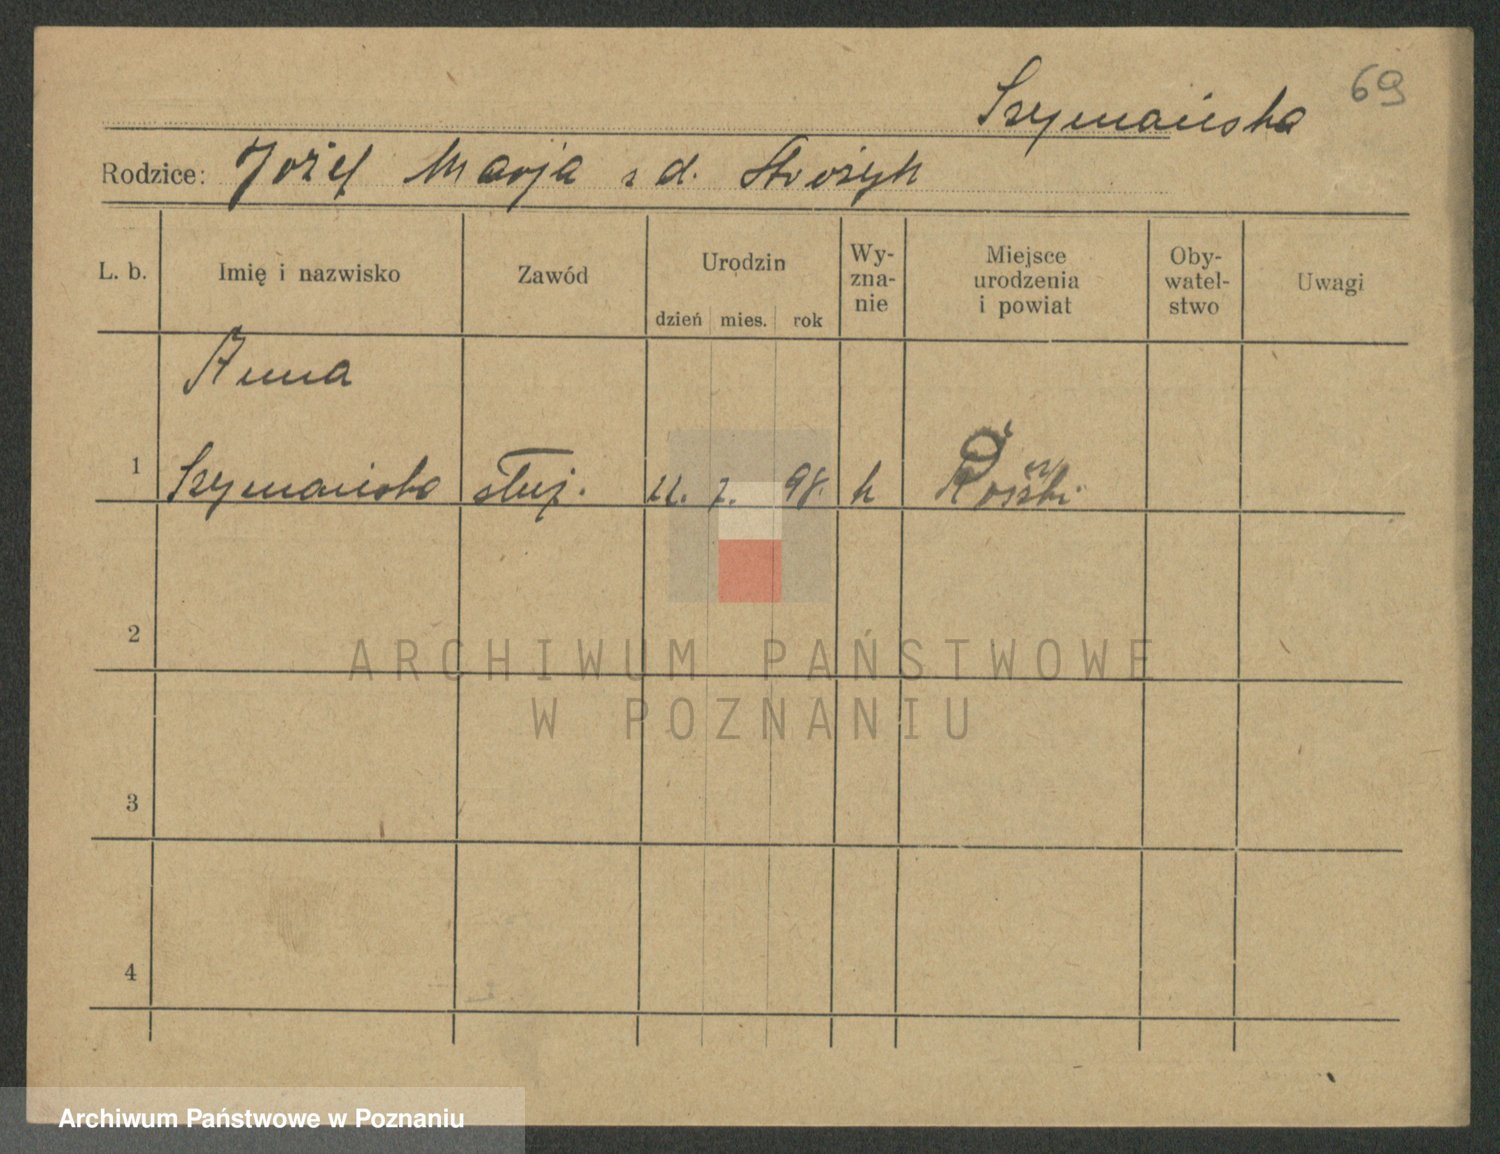 Szymańska 69
Rodzice: Józef Marja z d. Stróżyk
L. b. Imię i nazwisko Zawód Urodzin Wy-zna-nie Miejsce urodzenia i powiat Oby-watel-stwo Uwagi
dzień mies. rok
Anna
1 Szymańska służ. 22. 7. 98. k
2
ARCHIWUM PAŃSTWOWE
W POZNANIU
3
4
Archiwum Państwowe w Poznaniu